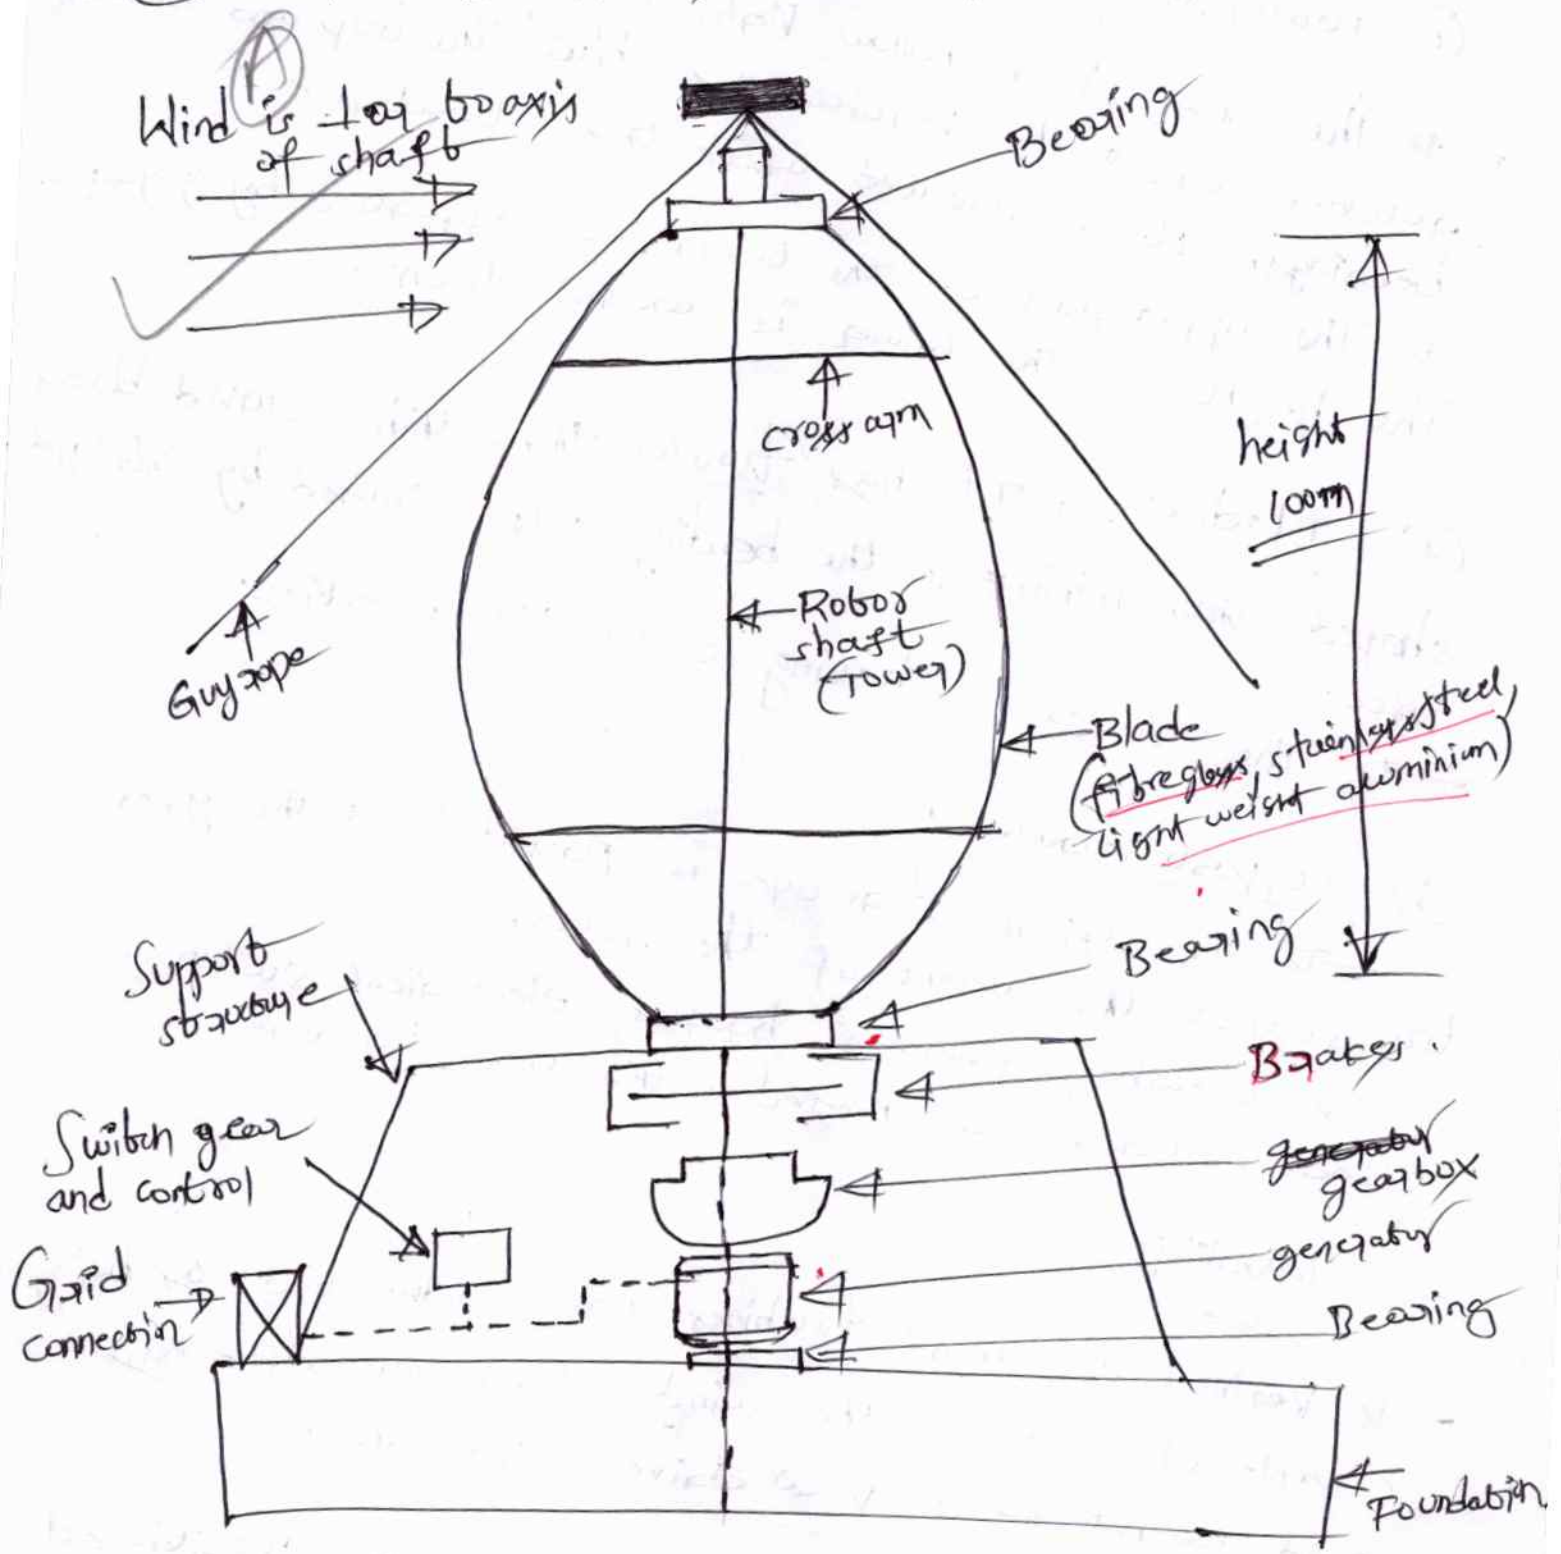 A
Wind is ⊥ar to axis
of shaft
Bearing
cross arm
height
100m
Rotor
shaft
(Tower)
Guy rope
Blade
(fibreglass, stainless steel,
light weight aluminium)
Support
structure
Bearing
Brakes.
Switch gear
and control
generator
gearbox
Grid
connection
generator
Bearing
Foundation